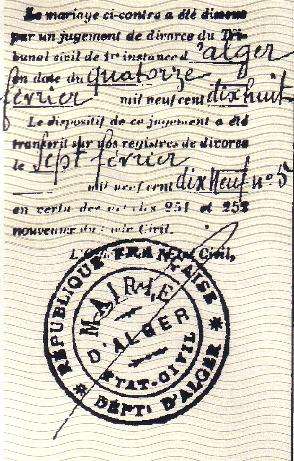 Le mariage ci-contre a été dissous
par un jugement de divorce du Tri-
bunal civil de 1re instance d'alger
en date du quatorze
février mil neuf cent dix huit
Le dispositif de ce jugement a été
transcrit sur nos registres de divorse
le Sept février
mil neuf cent dix Neuf n° 5
en vertu des articles 251 et 252
nouveaux du Code Civil.
L'Off État Civil,
RÉPUBLIQUE FRANÇAISE
MAIRIE
D'ALGER
ÉTAT-CIVIL
* DÉPT. D'ALGER *